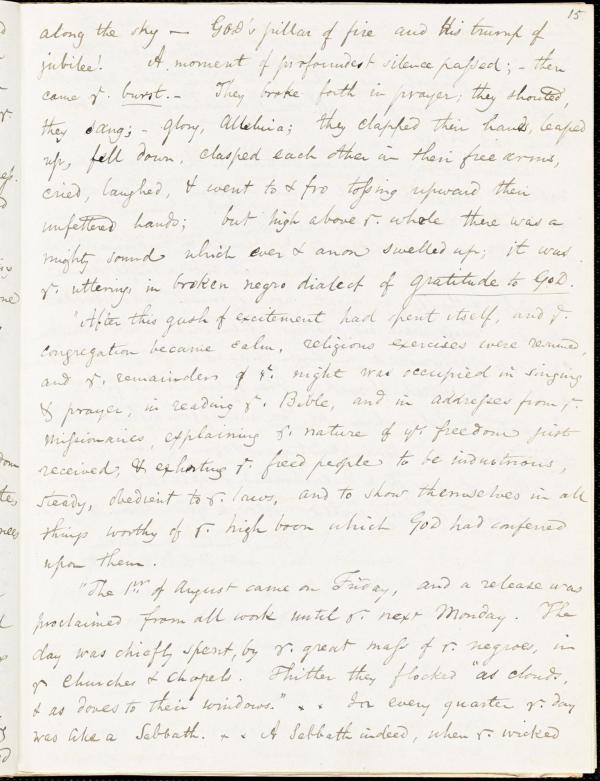 15
along the sky — GOD's pillar of fire and His trump of
jubilee! A moment of profoundest silence passed; – then
came yͤ. burst. – They broke forth in prayer; they shouted,
they sang; – glory, Alleluia; they clapped their hands, leaped
up, fell down, clasped each other in their free arms,
cried, laughed, & went to & fro tossing upward their
unfettered hands; but high above yͤ. whole there was a
mighty sound which ever & anon swelled up; it was
yͤ. utterings in broken negro dialect of gratitude to GOD.
"After this gush of excitement had spent itself, and yͤ.
congregation became calm, religious exercises were resumed,
and yͤ. remainders of yͤ. night was occupied in singing
& prayer, in reading yͤ. Bible, and in addresses from yͤ.
missionaries, explaining yͤ. nature of yͤ. freedom just
received, & exhorting yͤ. freed people to be industrious,
steady, obedient to yͤ. laws, and to show themselves in all
things worthy of yͤ. high boon which GOD had conferred
upon them.
"The 1st. of August came on Friday, and a release was
proclaimed from all work until yͤ. next Monday. The
day was chiefly spent, by yͤ. great mass of yͤ. negroes, in
yͤ Churches & Chapels. Thither they flocked "as clouds,
& as doves to their windows." × × In every quarter yͤ. day
was like a Sabbath. × × A Sabbath indeed, when yͤ. wicked